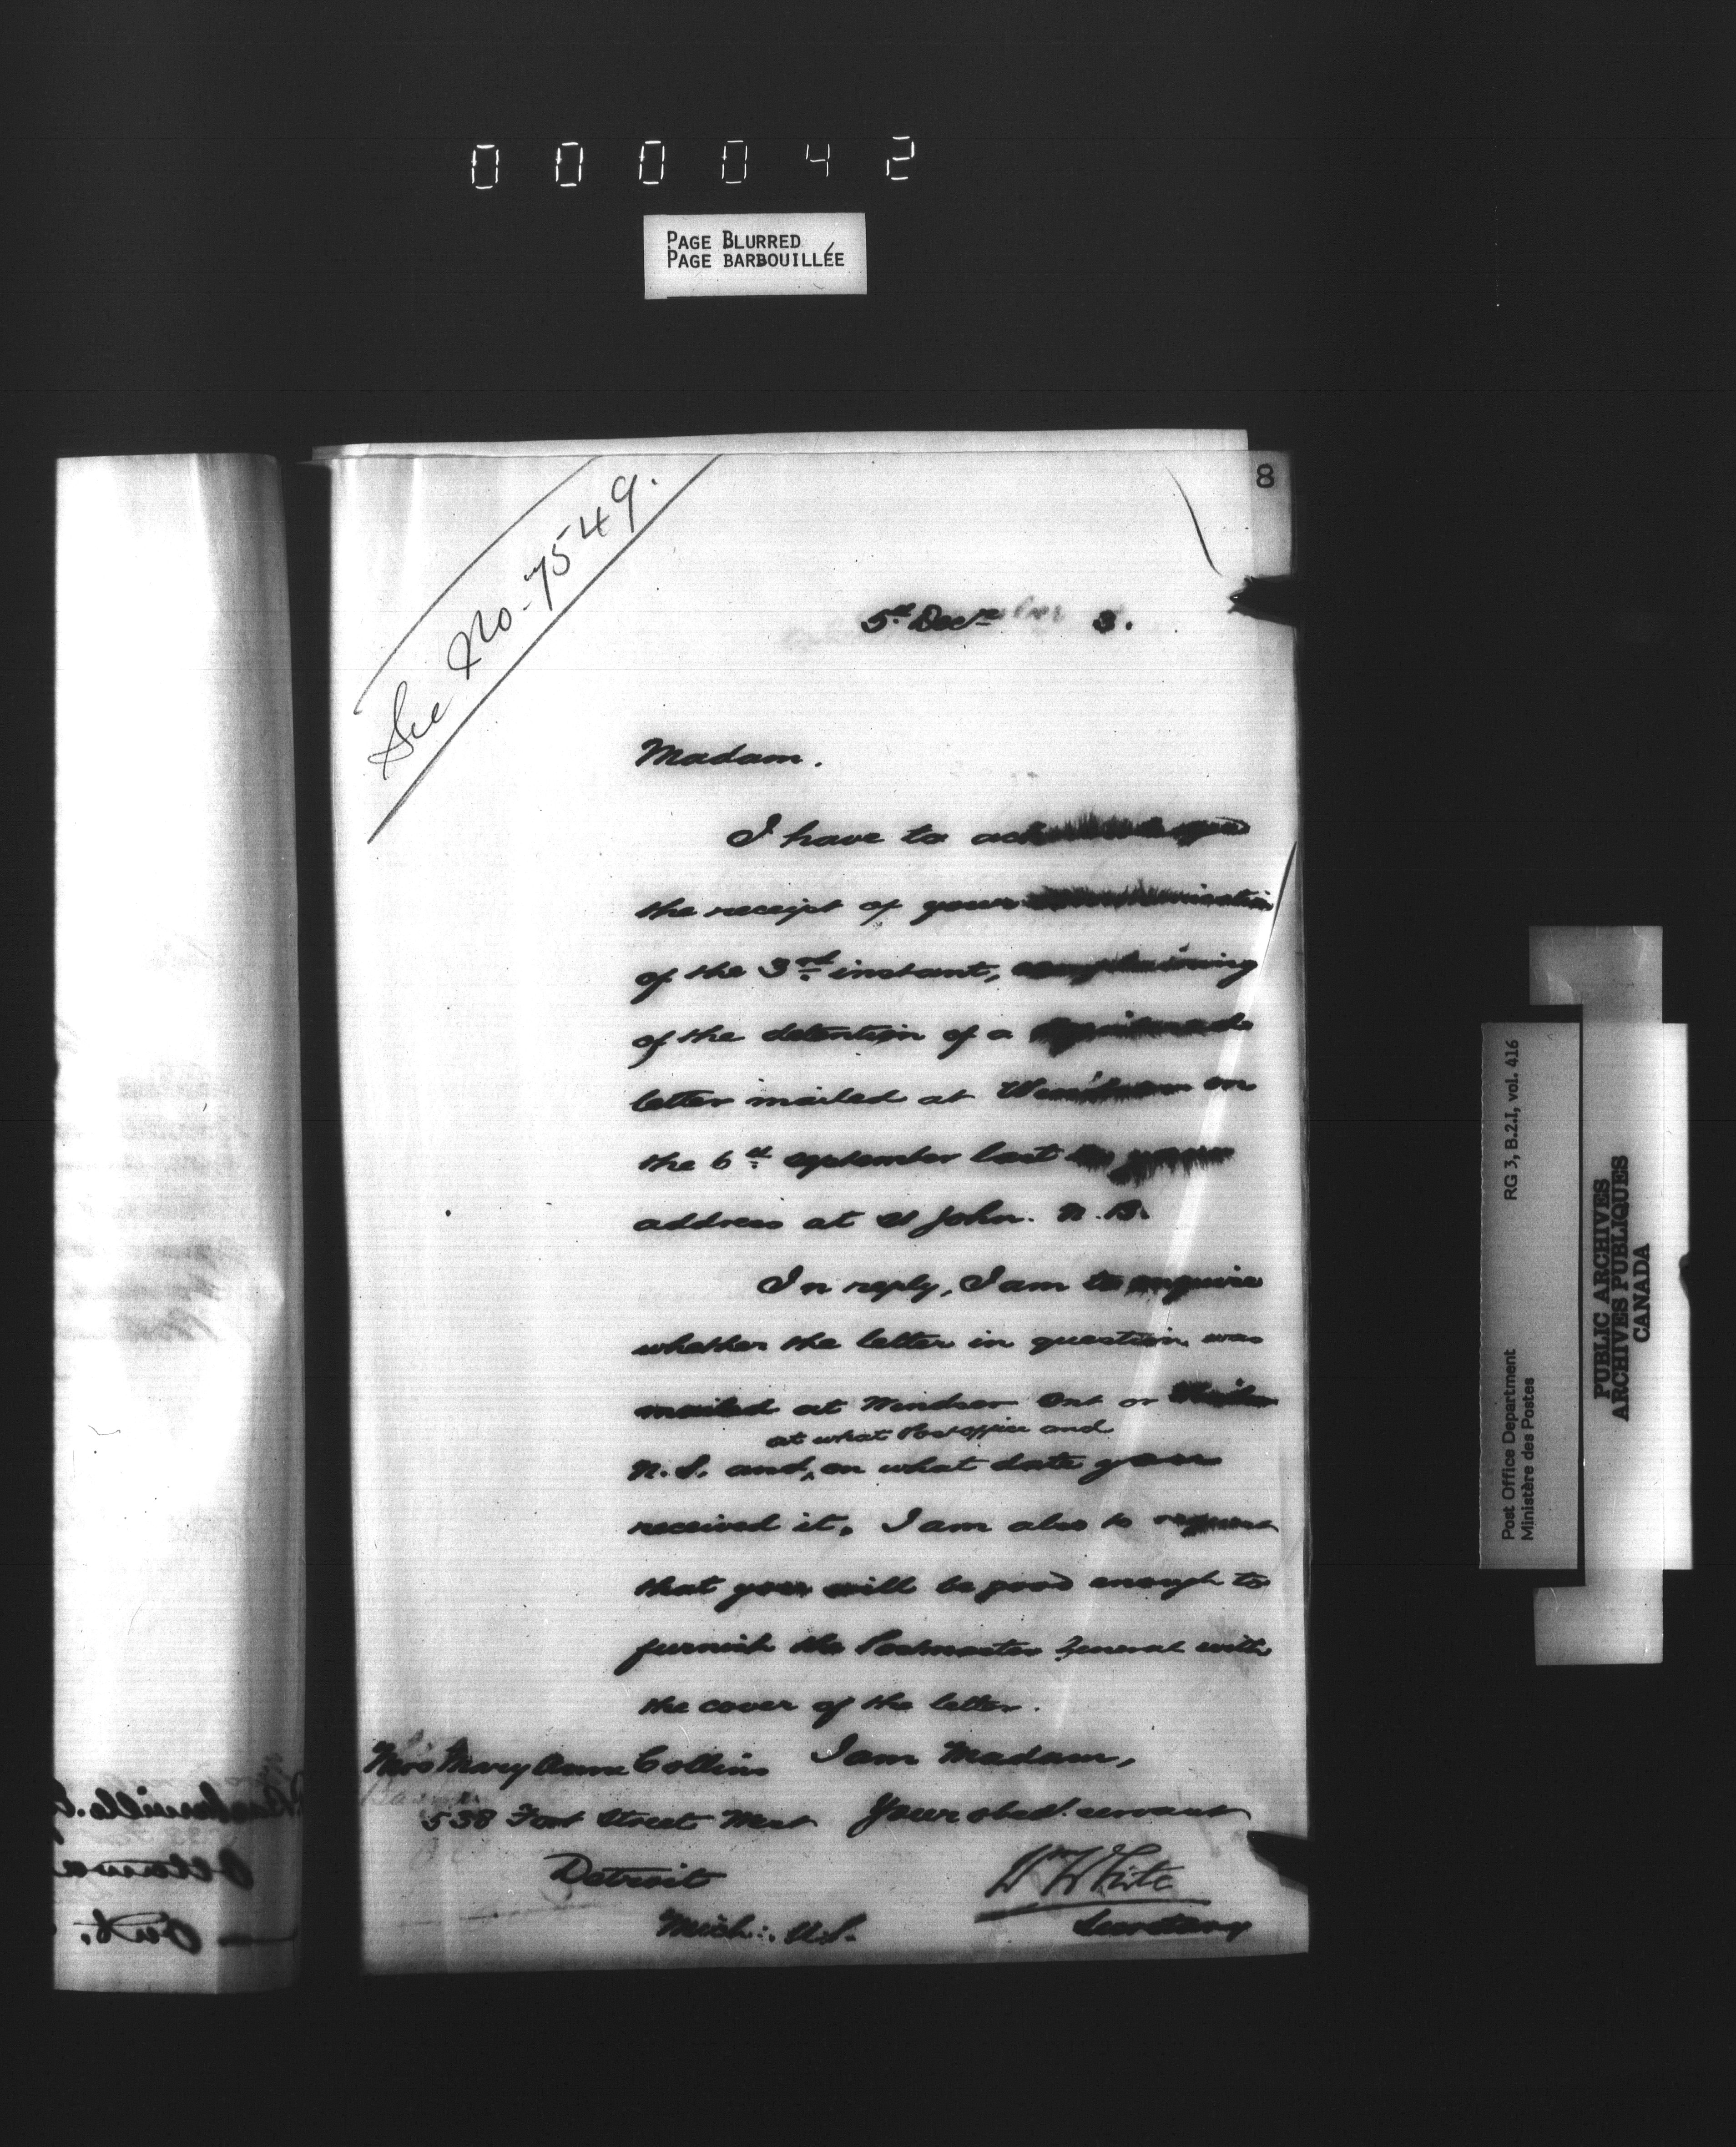 000042
PAGE BLURRED
PAGE BARBOUILLÉE
8
See No. 7549.
5th Decr 3.
Madam.
I have to acknowledge
the receipt of your communication
of the 3rd instant, complaining
of the detention of a
letter mailed at on
the 6th September last to your
address at St John. N.B.
In reply, I am to enquire
whether the letter in question was
mailed at Windsor Ont or
at what Post office and
N.S. and, on what date you
received it. I am also to request
that you will be good enough to
furnish the Postmaster General with
the cover of the letter.
I am Madam,
Your obed. servant
Wm White
Secretary
Mrs Mary Anne Collins
538 Fort Street West
Detroit
Mich: U.S.
Ottawa
Ont.
RG 3, B.2.I, vol. 416
Post Office Department
Ministère des Postes
PUBLIC ARCHIVES
ARCHIVES PUBLIQUES
CANADA